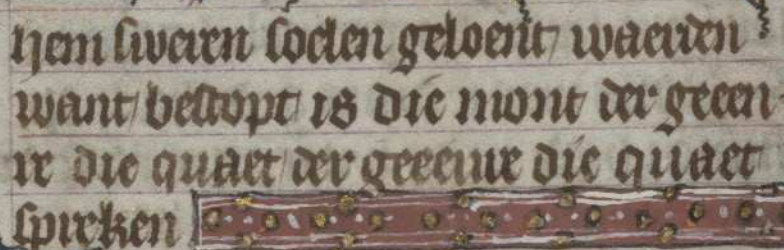 hem sweren soelen geloent waerden
want bestopt is die mont der geeen
re die quaet der geeenre die quaet
spreken